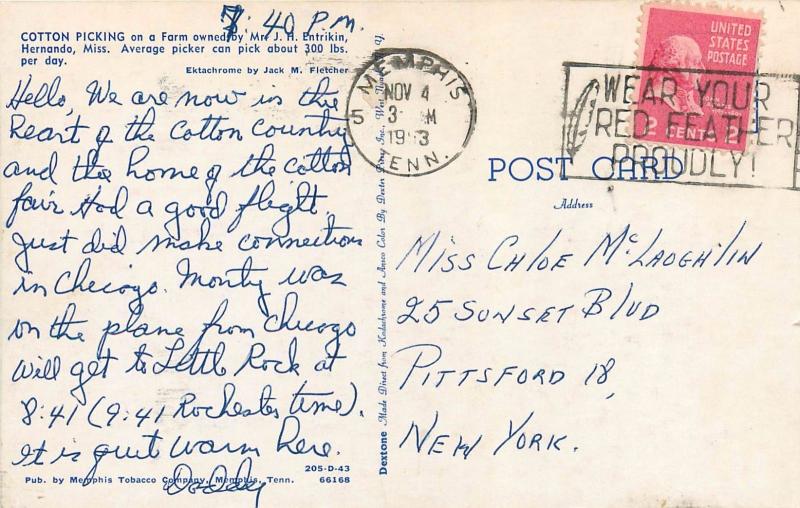 7:40 P.M.
COTTON PICKING on a Farm owned by Mr. J. H. Entrikin,
Hernando, Miss. Average picker can pick about 300 lbs.
per day.
Ektachrome by Jack M. Fletcher
Hello, We are now in the
heart of the cotton country
and the home of the cotton
fair. Had a good flight.
Just did make connections
in Chicago. Monty was
on the plane from Chicago
will get to Little Rock at
8:41 (9:41 Rochester time).
It is quit warm here.
Daddy
205-D-43
Pub. by Memphis Tobacco Company, Memphis, Tenn. 66168
Dextone Made Direct from Kodachrome and Ansco Color By Dexter Press Inc., West N.Y.
MEMPHIS
NOV 4
5
3- M
TENN.
UNITED
STATES
POSTAGE
2 CENTS 2
WEAR YOUR
RED FEATHER
PROUDLY!
POST CARD
Address
MISS CHLOE McLAOGHLIN
25 SUNSET BLVD
PITTSFORD 18,
NEW YORK.